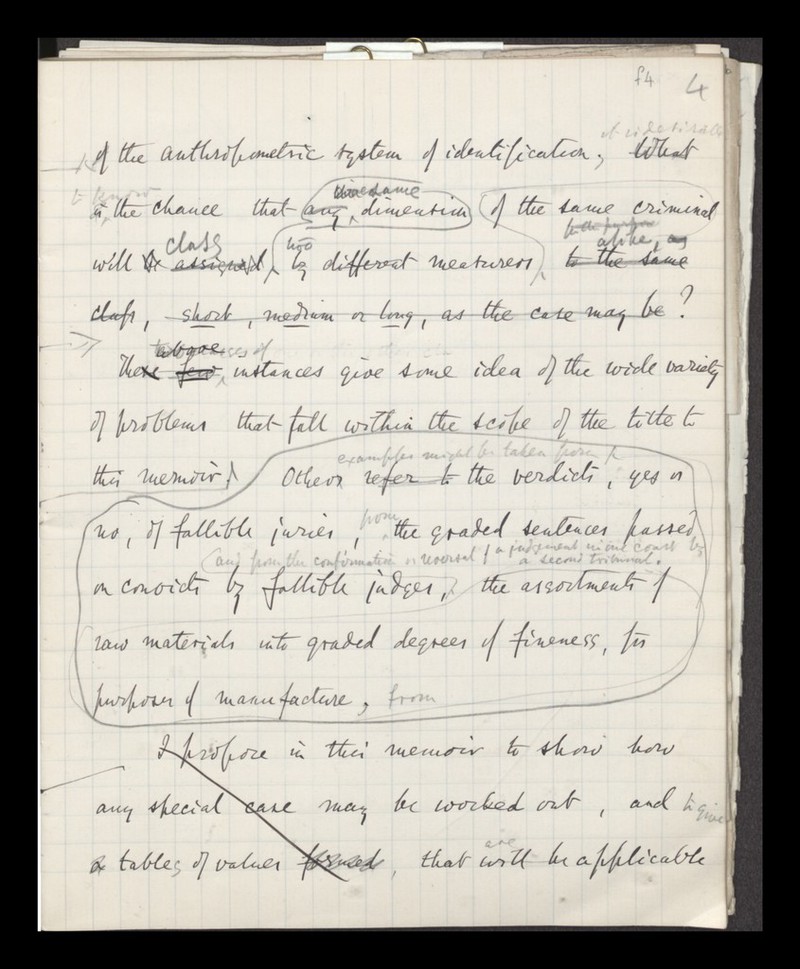 f4 4
it is desirable
of the anthropometric system of identification, What
to know
the same
is, the chance that any, dimension of the same criminal
class two alike, as
will be assigned, by different measurers, to the same
class, short, medium or long, as the case may be?
above
These few, instances give some idea of the wide variety
of problems that fall within the scope of the title to
examples might be taken from
this memoir. Others refer to the verdicts, yes or
from
no, of fallible juries, the graded sentences passed
and from the confirmation or reversal of a judgment in one court by
a second tribunal.
on convicts by fallible judges, the assortments of
raw materials into graded degrees of fineness, for
purposes of manufacture, from
I propose in this memoir to show how
any special case may be worked out, and to give
are
a tables of values formed, that will be applicable